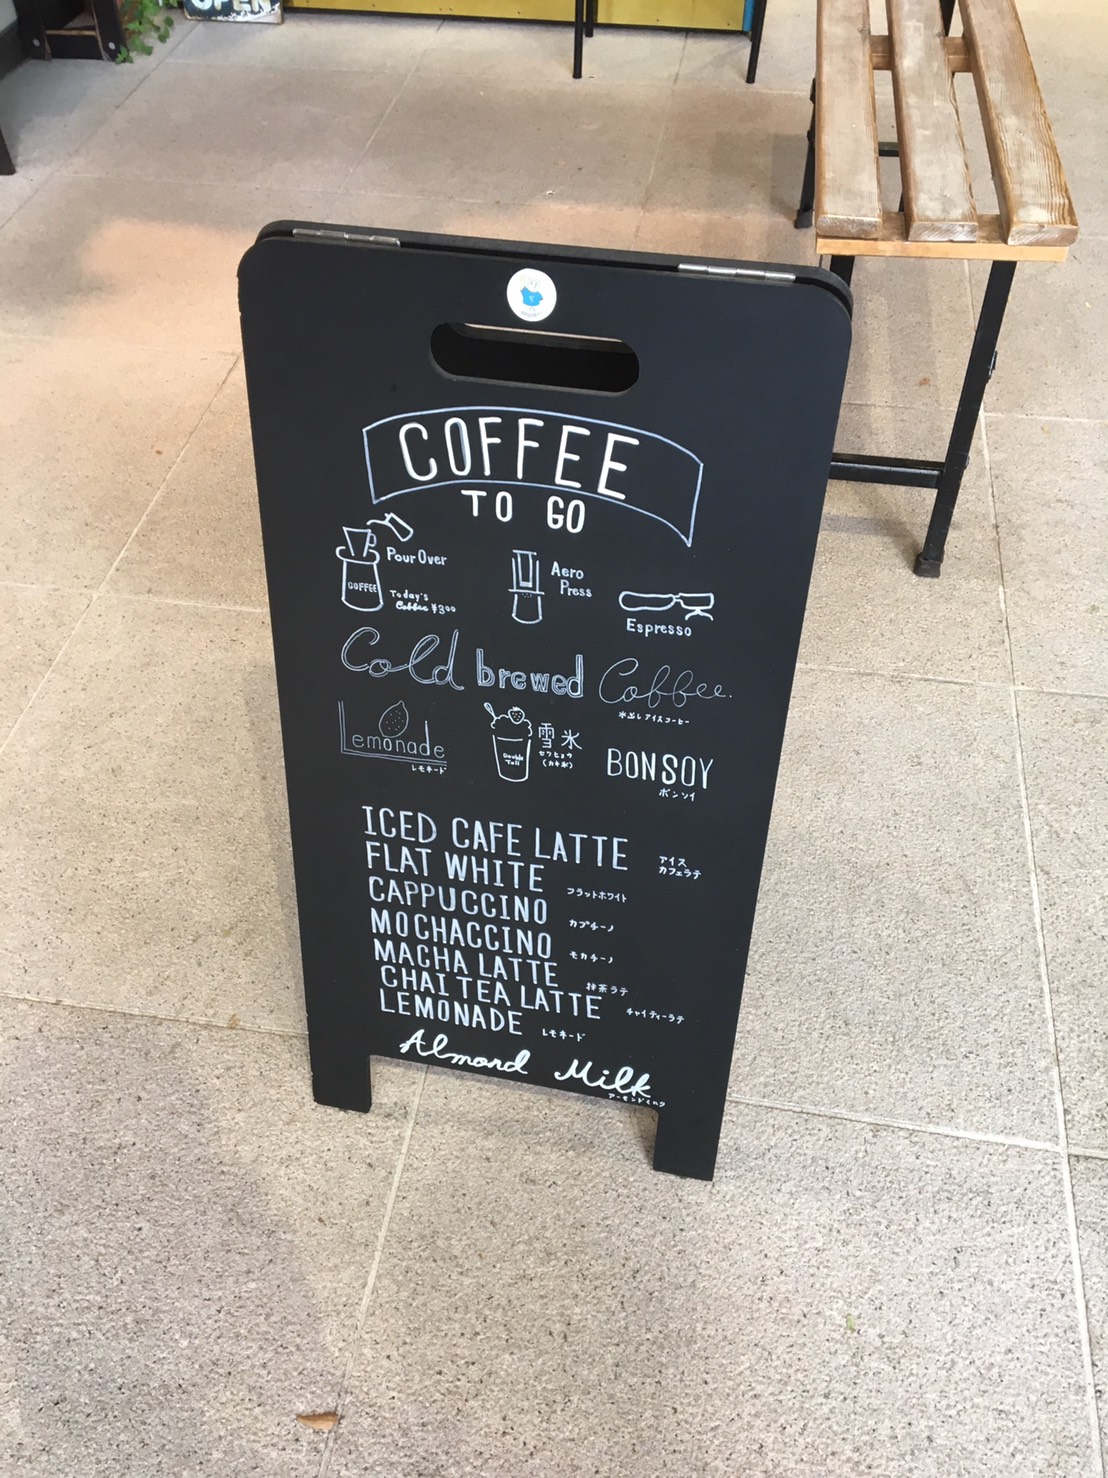 OPEN
COFFEE
TO GO
Pour Over
COFFEE
Today's
Coffee ¥300
Aero
Press
Espresso
Cold brewed Coffee.
水出しアイスコーヒー
Lemonade
レモネード
Double
Tall
雪氷
セツヒョウ
(カキ氷)
BONSOY
ボンソイ
ICED CAFE LATTE
アイス
カフェラテ
FLAT WHITE フラットホワイト
CAPPUCCINO カプチーノ
MOCHACCINO モカチーノ
MACHA LATTE 抹茶ラテ
CHAI TEA LATTE チャイティーラテ
LEMONADE レモネード
Almond Milk
アーモンドミルク